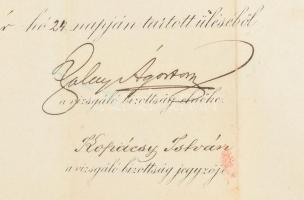 r hó 24 napján tartott üléséből
Ágoston
a vizsgáló bizottság elnöke.
Kopácsy István
a vizsgáló bizottság jegyzője